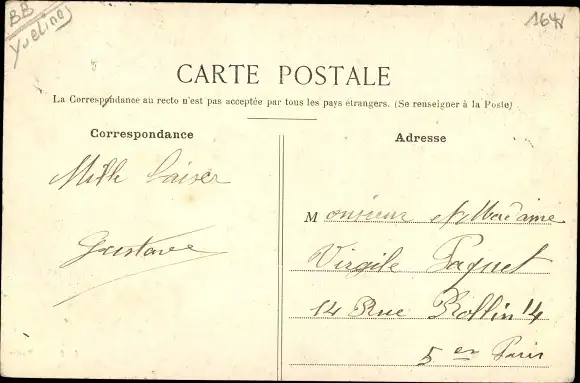 BB
Yvelines
164
CARTE POSTALE
La Correspondance au recto n'est pas acceptée par tous les pays étrangers. (Se renseigner à la Poste)
Correspondance
Mille baiser
Gustave
Adresse
Monsieur et Madame
Virgile Paquet
14 Rue Rollin 14
5 er Paris